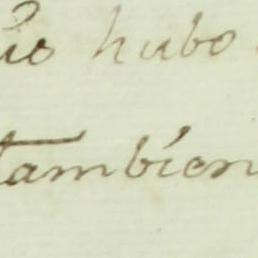 hubo
tambien